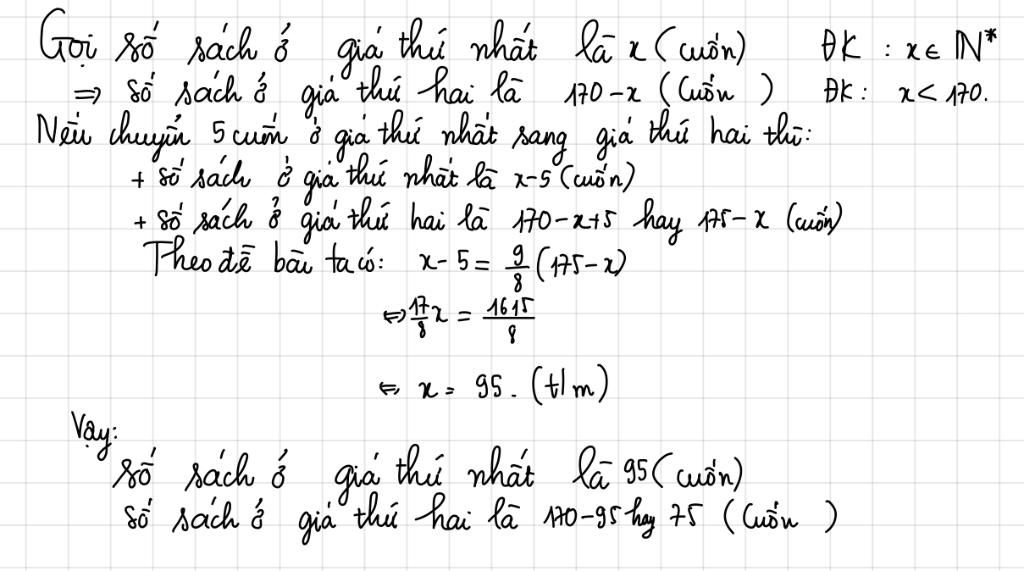 Gọi số sách ở giá thứ nhất là x (cuốn) ĐK : x ∈ ℕ*
⇒ số sách ở giá thứ hai là 170-x (cuốn ) ĐK: x < 170.
Nếu chuyển 5 cuốn ở giá thứ nhất sang giá thứ hai thì:
+ số sách ở giá thứ nhất là x-5 (cuốn)
+ số sách ở giá thứ hai là 170-x+5 hay 175-x (cuốn)
Theo đề bài ta có: x-5 = 9/8 (175-x)
⇔ 17/8 x = 1615/8
⇔ x = 95. (t/m)
Vậy:
số sách ở giá thứ nhất là 95 (cuốn)
số sách ở giá thứ hai là 170-95 hay 75 (cuốn )